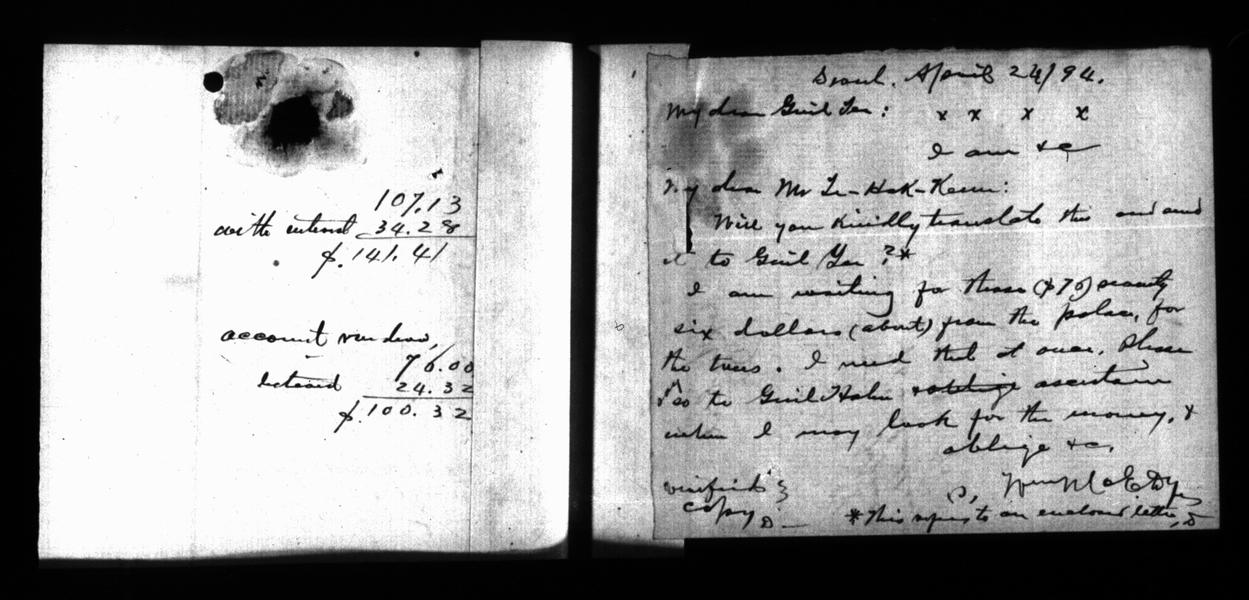 107.13
with interest 34.28
$.141.41
account rendered,
76.00
interest 24.32
$.100.32
Seoul. April 24/94.
My dear Guil Yen: x x x x
I am &c
My dear Mr Ye-Hak-Keun:
Will you kindly translate this and send
it to Guil Yen?*
I am waiting for those ($76) seventy
six dollars (about) from the palace, for
the trees. I need that at once. Please
go to Guil Hahn & oblige ascertain
when I may look for the money, &
oblige &c,
(s, Wm McE Dye
verified }
copy D.—
*This refers to an enclosed letter, D